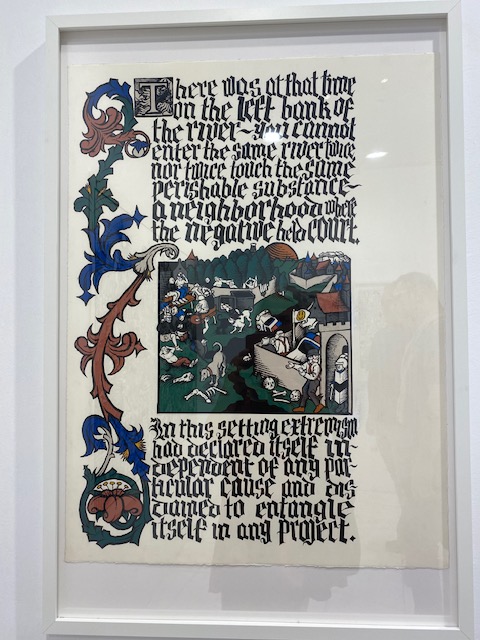 There was at that time
on the left bank of
the river~you cannot
enter the same river twice
nor twice touch the same
perishable substance~
a neighborhood where
the negative held court.
In this setting extremism
had declared itself in-
dependent of any par-
ticular cause and dis-
dained to entangle
itself in any project.